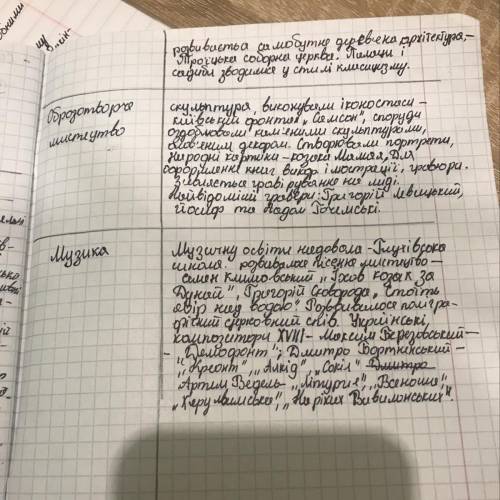 розвивається самобутнє деревена архітектура,-
Троїцька соборна церква. Палаци і
садиби зводилися у стилі класицизму.
Образотворче
мистецтво
скульптура, виконували іконостаси -
київський фонтан „Самсон", споруди
оздоблювали кам'яними скульптурами,
ліпленим декором. Створювали портрети,
народні картини - козака Мамая, Для
оформлення книг ілюстрації, гравюри.
З'являється гравірування на міді.
Найвідоміші гравери: Григорій Левицький,
Йосиф та Адам Гочемські.
Музика
Музичну освіту надавала - Глухівська
школа. розвивалося пісенне мистецтво -
Семен Климовський „Їхав козак за
Дунай", Григорій Сковорода „Стоїть
явір над водою". Розвивалося полігра-
фічний церковний спів. Українські,
композитори XVIII - Максим Березовський -
- „Демофонт"; Дмитро Бортнянський -
„Креонт", „Алкід", „Сокіл" Дмитро
Артем Ведель - „літургія", „Всеношна",
„Херувимська", „На ріках Вавилонських".